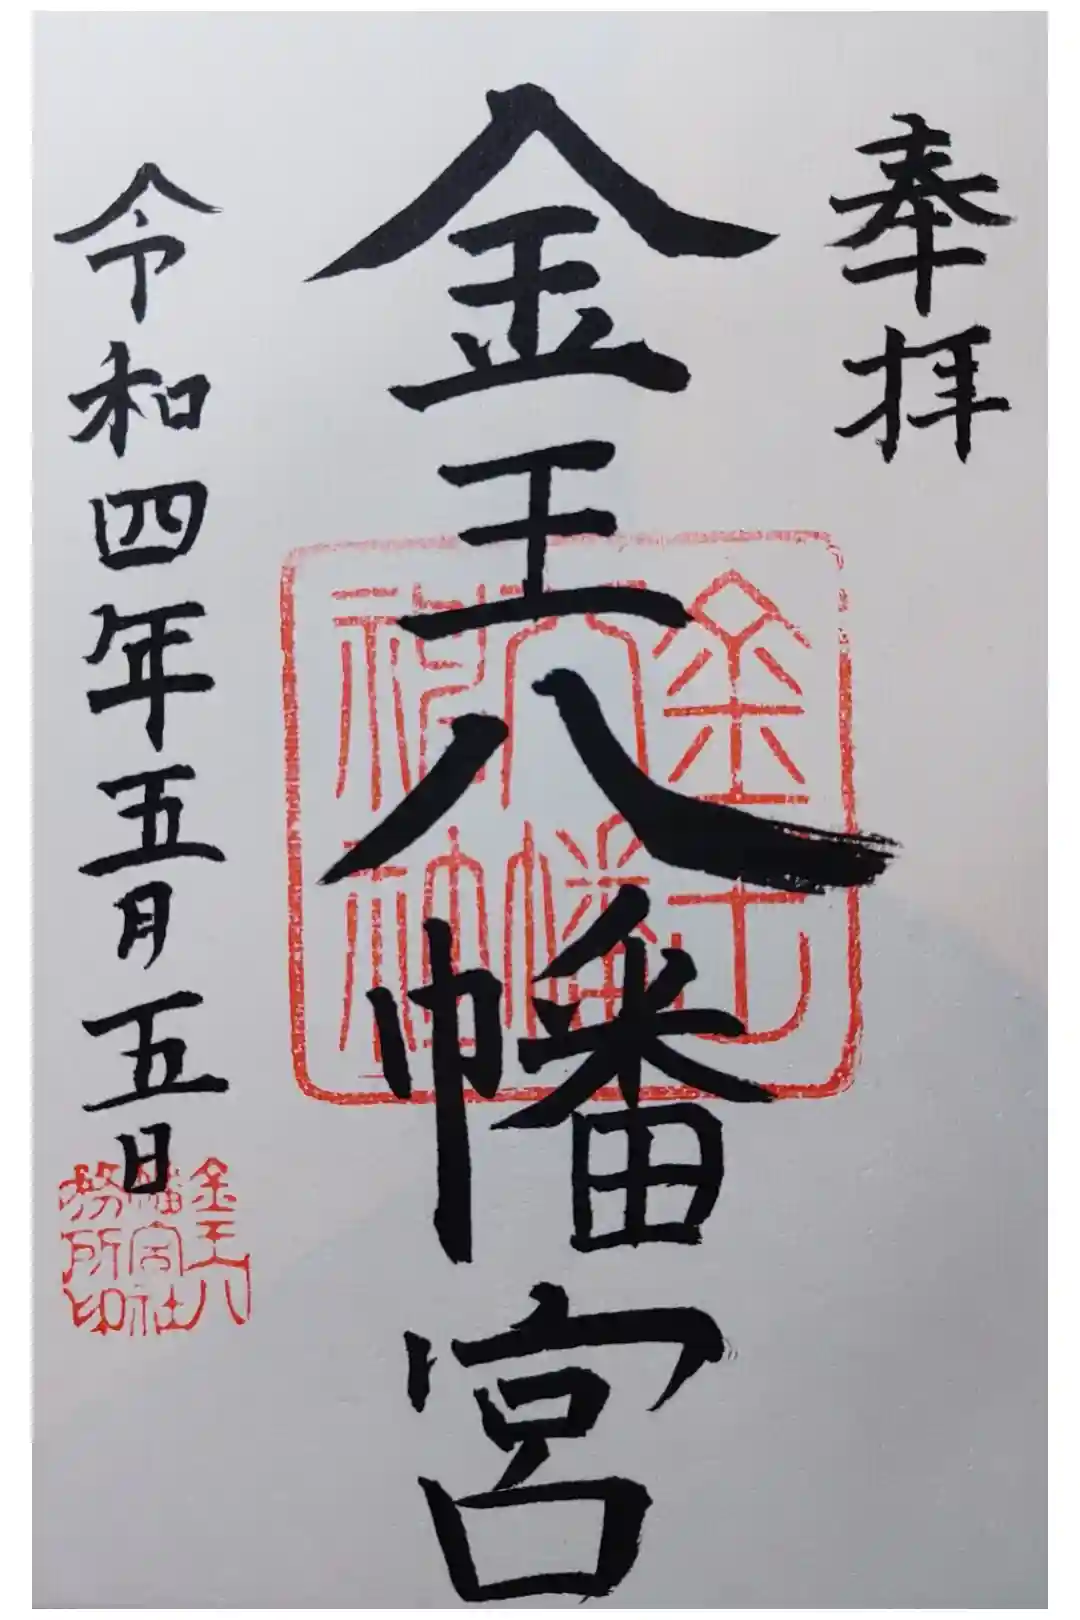 奉拝
金王八幡宮
令和四年五月五日
金王八
幡宮社
務所印